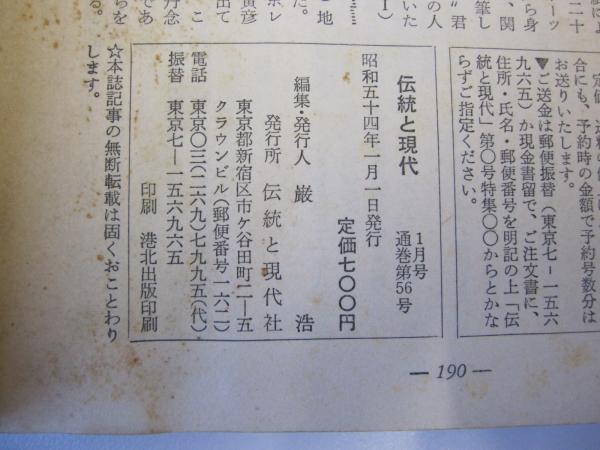 お送りいたします。
合にも、予約時の金額で予約号数分は
▼ご送金は郵便振替(東京七ー一五六
九六五)か現金書留で、ご注文書に、
住所・氏名・郵便番号を明記の上「伝
統と現代」第〇号特集〇〇からとかな
らずご指定ください。
伝統と現代
1月号
通巻第56号
昭和五十四年一月一日発行
定価七〇〇円
編集・発行人 巌 浩
発行所 伝統と現代社
東京都新宿区市ケ谷田町二ー五
クラウンビル(郵便番号一六二)
電話 東京〇三(二六九)七九九五(代)
振替 東京七ー一五六九六五
印刷 港北出版印刷
☆本誌記事の無断転載は固くおことわり
します。
— 190 —